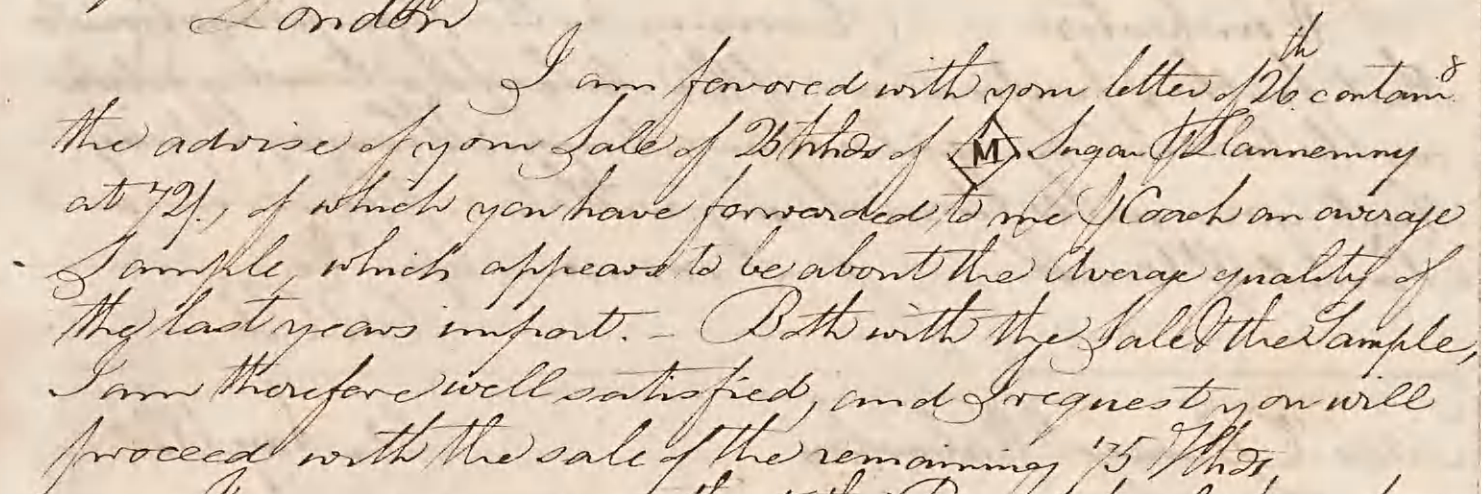 London
I am favored with your letter of 26th. containg
the advise of your Sale of 25 Hhds of M Sugar
at 72/., of which you have forwarded to me Coach an average
Sample, which appears to be about the Average quality of
the last years import. — Both with the Sale & the Sample,
I am therefore well satisfied, and I request you will
proceed with the sale of the remaining 75 Hhds,